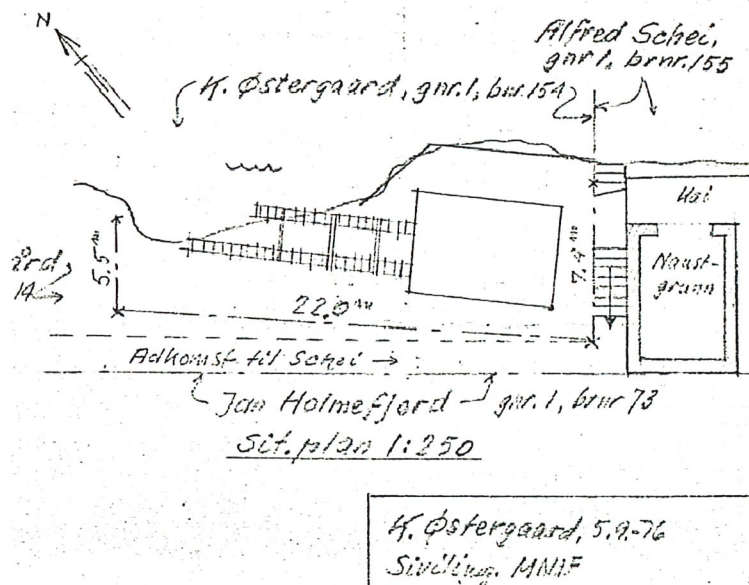 N
Alfred Schei,
gnr 1, brnr. 155
K. Østergaard, gnr. 1, bnr. 154
Kai
7.4 m
Naust-
grunn
5.5 m
22.0 m
14
Adkomst til Schei →
Jan Holmefjord gnr. 1, brnr 73
Sit. plan 1:250
K. Østergaard, 5.9.-76
Siviling. MNIF